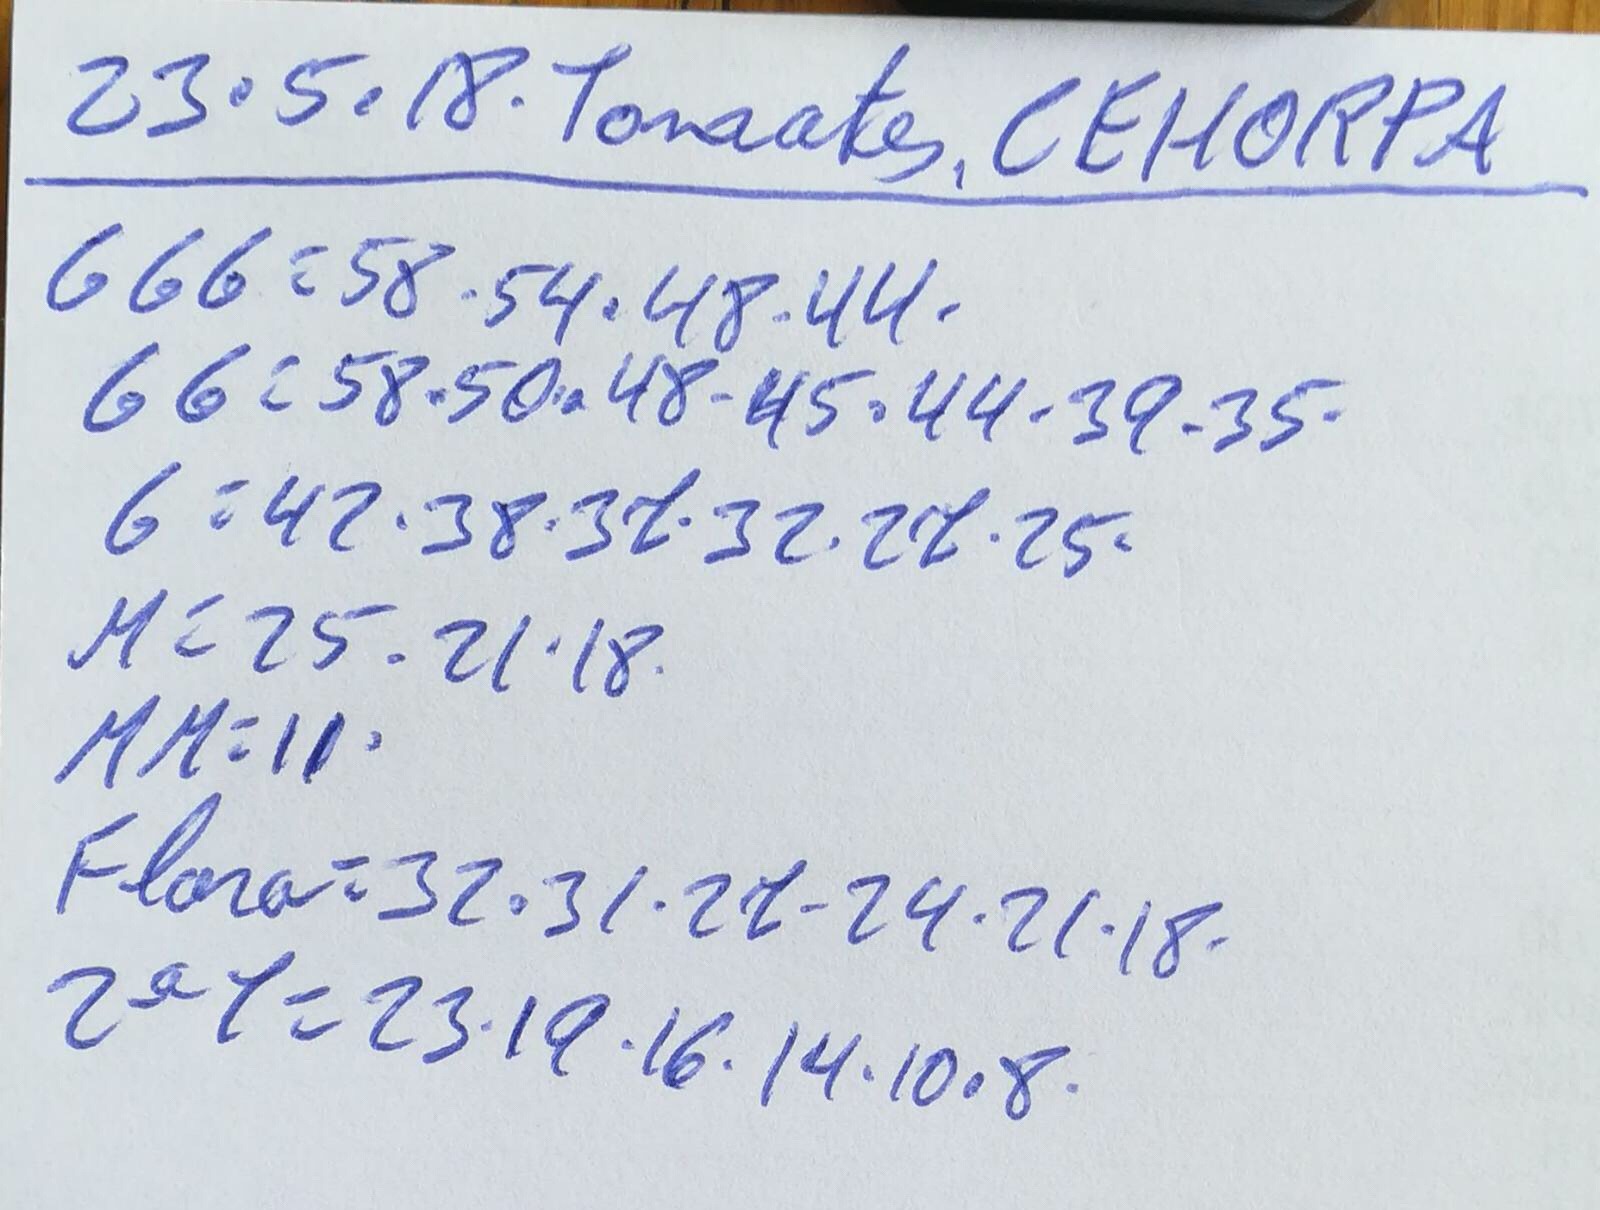 23.5.18. Tomates, CEHORPA
GGG=58.54.48.44.
GG=58.50.48-45.44.39-35.
G=42.38.37.32.27.25.
M=25.21.18.
MM=11.
Flora=32.31.27-24.21.18.
2ªT=23.19.16.14.10.8.